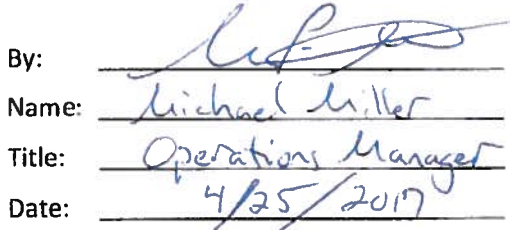 By:
Name: Michael Miller
Title: Operations Manager
Date: 4/25/2017